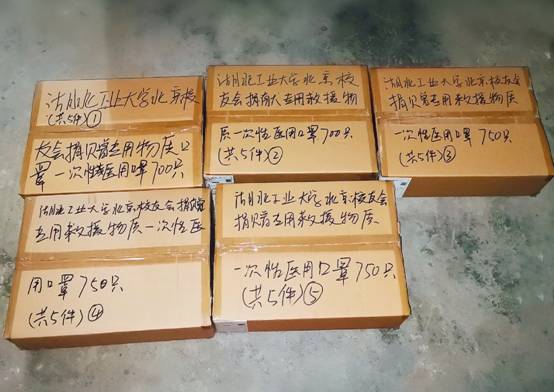 湖北工业大学北京校
(共5件)①
友会捐赠专用物质口
罩一次性医用口罩700只
湖北工业大学北京校
友会捐赠专用救援物
质一次性医用口罩700只
(共5件)②
湖北工业大学北京校友会
捐赠专用救援物质
一次性医用口罩750只
(共5件)③
湖北工业大学北京校友会捐赠
专用救援物质一次性医
用口罩750只
(共5件)④
湖北工业大学北京校友会
捐赠专用救援物质
一次性医用口罩750只
(共5件)⑤